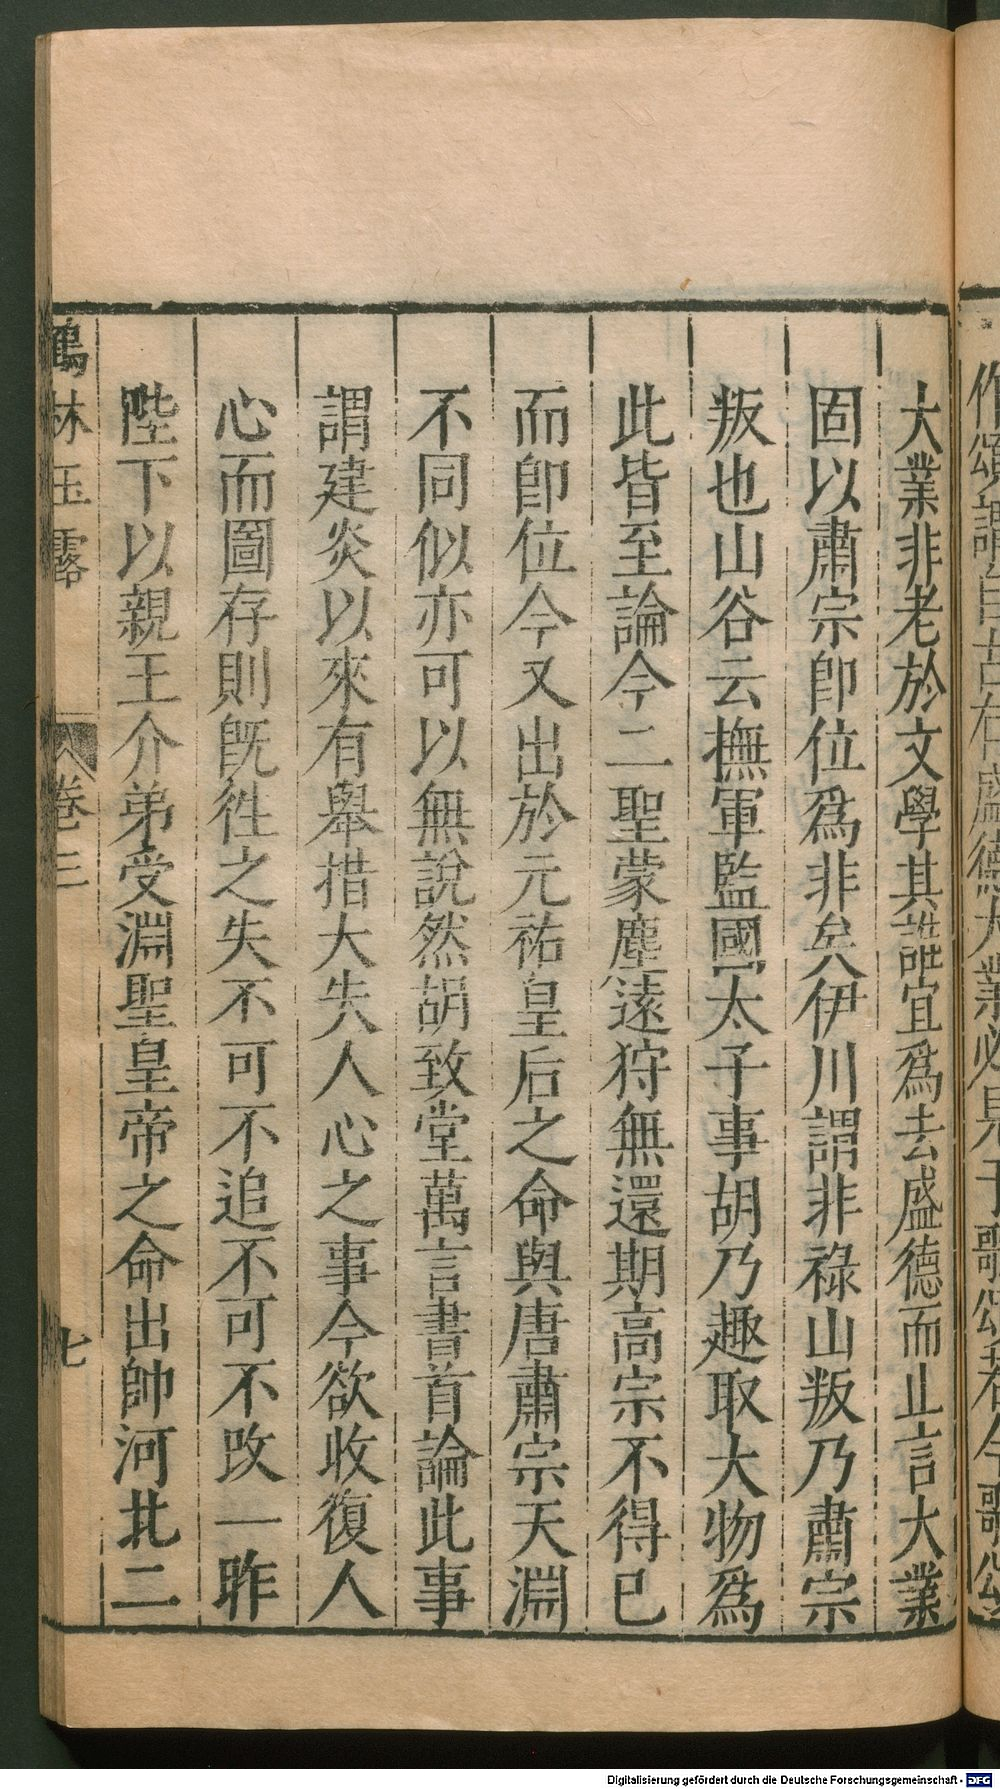 作頌謂自古有盛德大業必見于歌頌若今歌頌
大業非老於文學其誰宜爲去盛德而止言大業
固以肅宗卽位爲非矣伊川謂非祿山叛乃肅宗
叛也山谷云撫軍監國太子事胡乃趣取大物爲
此皆至論今二聖蒙塵遠狩無還期高宗不得已
而卽位今又出於元祐皇后之命與唐肅宗天淵
不同似亦可以無說然胡致堂萬言書首論此事
謂建炎以來有舉措大失人心之事今欲收復人
心而圖存則旣徃之失不可不追不可不改一昨
陛下以親王介弟受淵聖皇帝之命出帥河北二
鶴林玉露 卷三 七
Digitalisierung gefördert durch die Deutsche Forschungsgemeinschaft - DFG